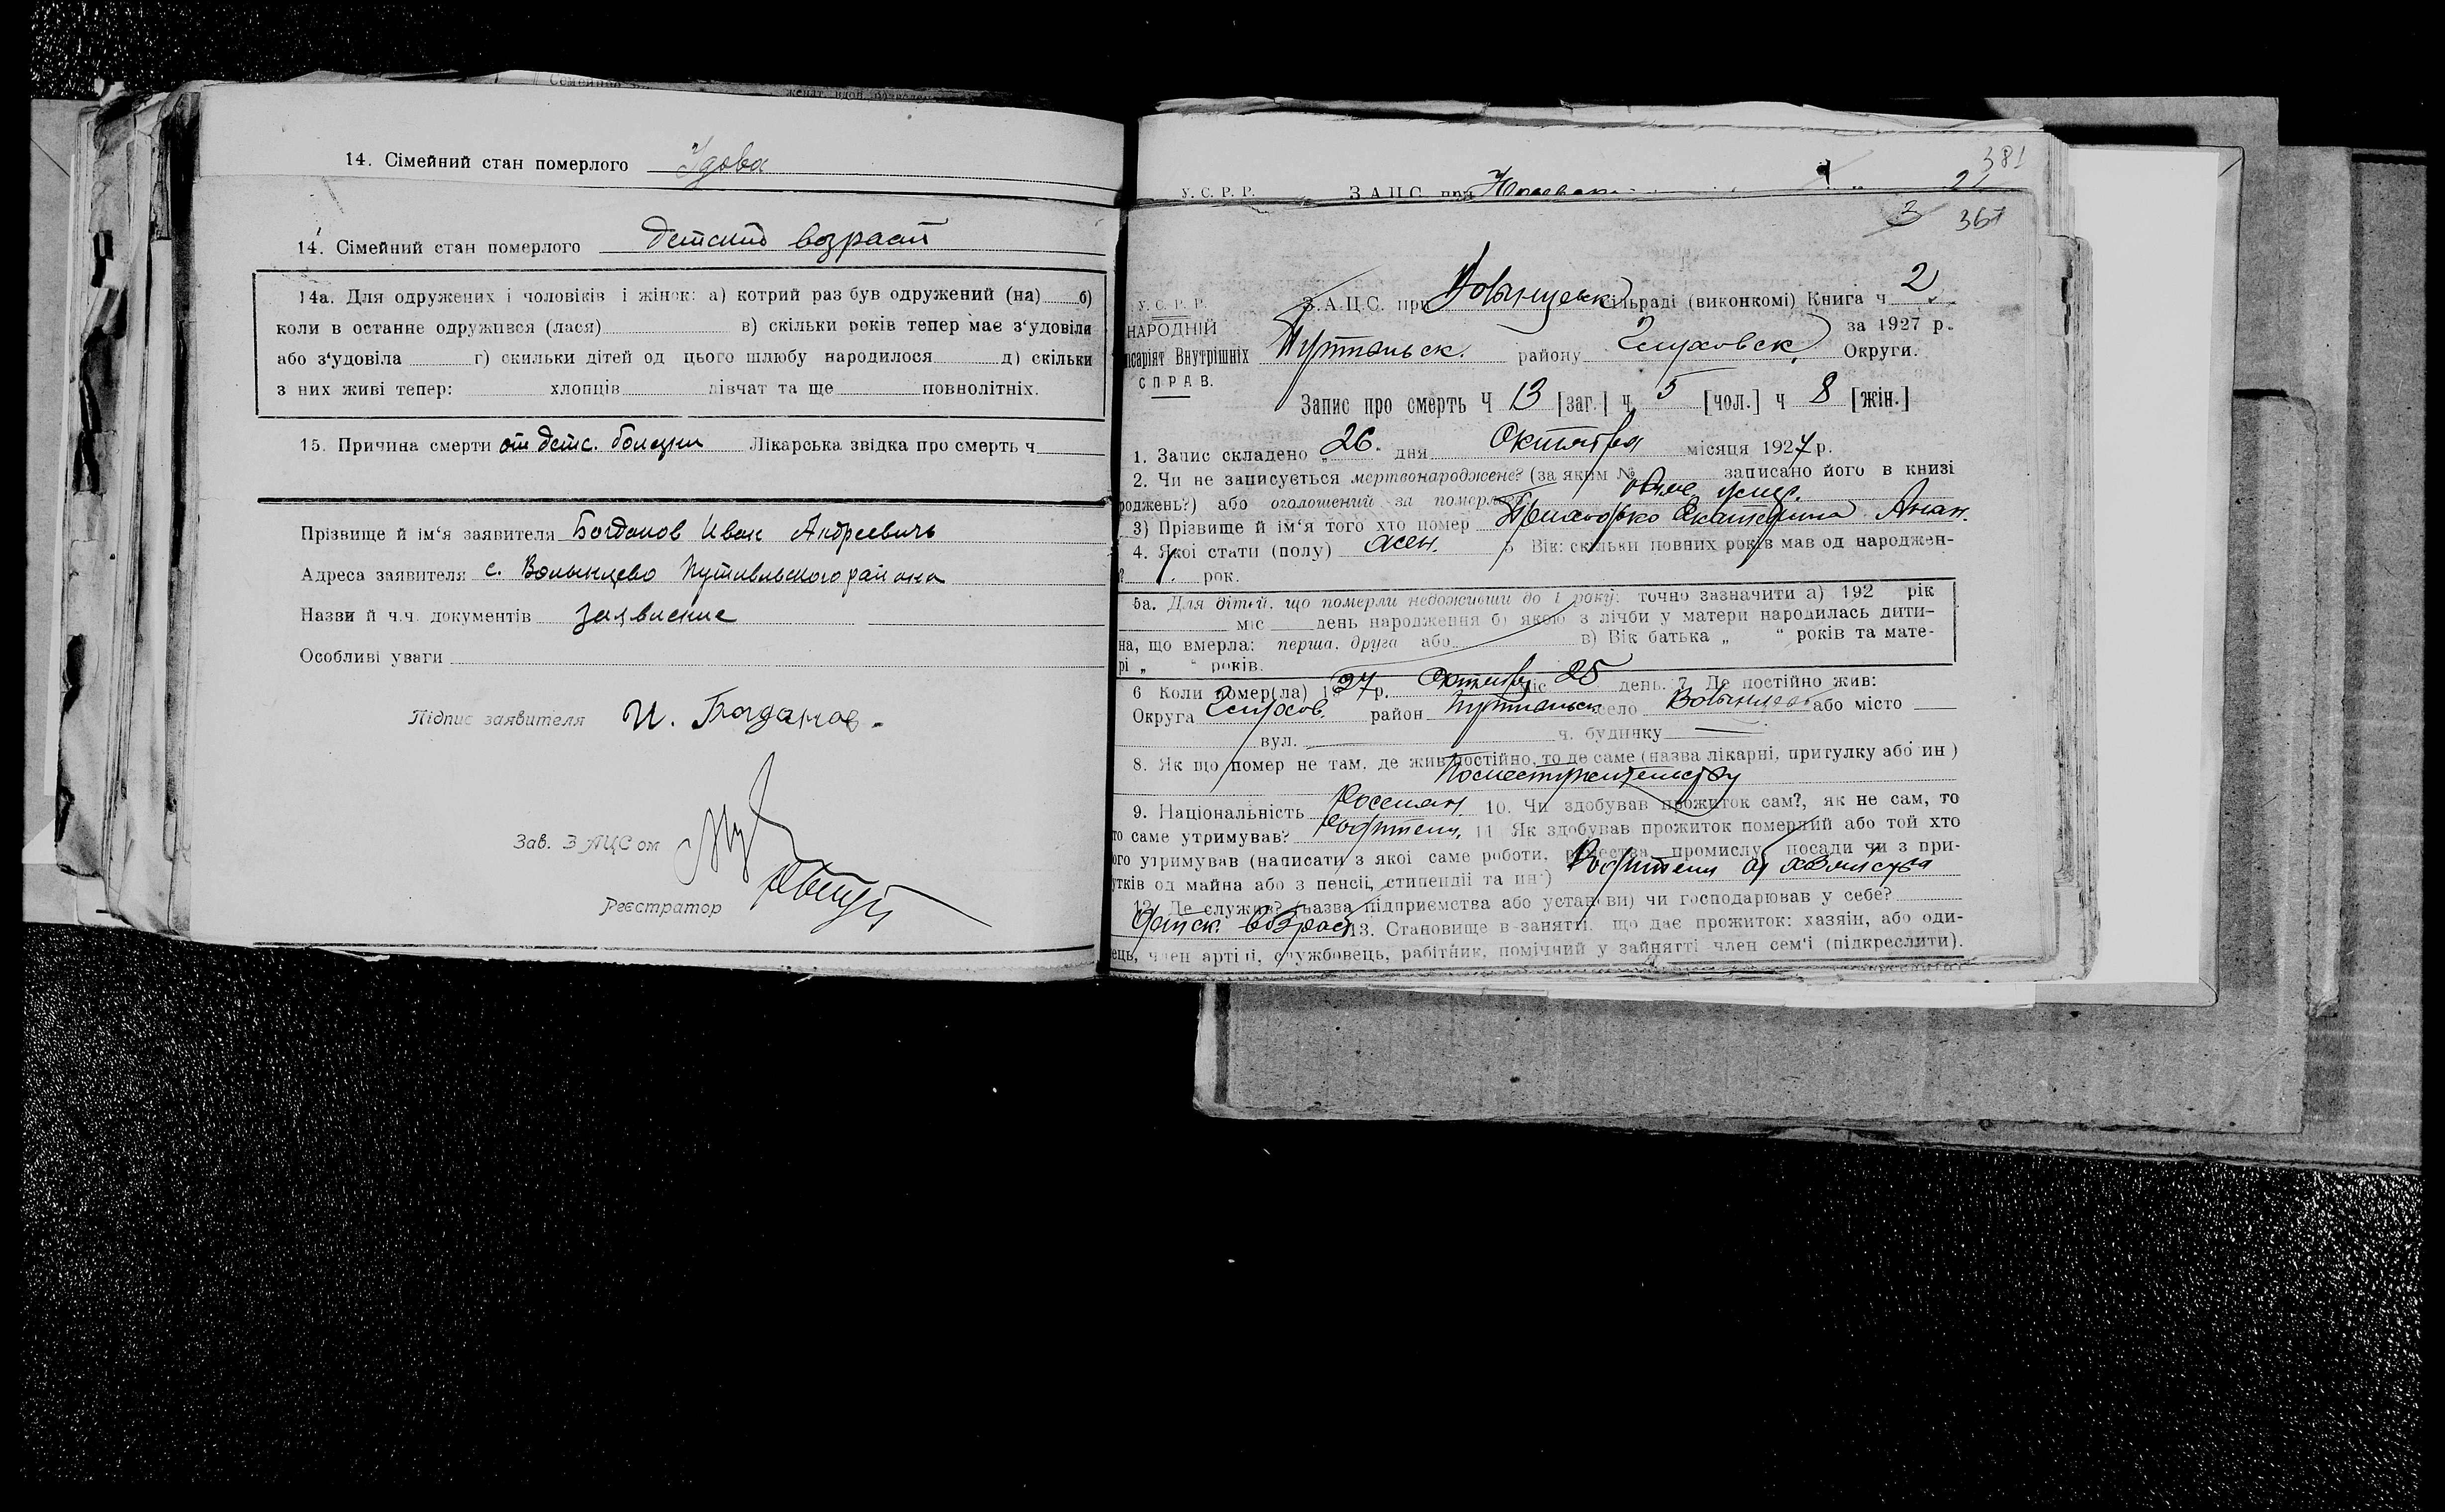 14. Сімейний стан померлого Удова
14. Сімейний стан померлого детский возраст
14а. Для одружених і чоловіків і жінок: а) котрий раз був одружений (на) б)
коли в останне одружився (лася) в) скільки років тепер має з‘удовіла
або з‘удовіла г) скильки дітей од цього шлюбу народилося д) скільки
з них живі тепер: хлопців дівчат та ще повнолітніх.
15. Причина смерти от детс. болезни Лікарська звідка про смерть ч.
Прізвище й ім‘я заявителя Богданов Иван Андреевичъ
Адреса заявителя с. Волынцево Путивльского района
Назви й ч.ч. документів заявление
Особливі уваги
Підпис заявителя И. Богданов.
Зав. ЗАЦСом
Реєстратор
381
У. С. Р. Р. З.А.Ц.С. при
3 361
У. С. Р. Р. З.А.Ц.С. при Волынцевск. сільраді (виконкомі) Книга ч. 2
НАРОДНІЙ за 1927 р.
місаріят Внутрішніх Путивльск. району Глуховск. Округи.
СПРАВ.
Запис про смерть Ч 13 [заг.] ч. 5 [чол.] ч 8 [жін.]
1. Запис складено „26. дня Октября місяця 1927 р.
2. Чи не записується мертвонароджене? (за яким № записано його в книзі
роджень?) або оголошений за померлого
3) Прізвище й ім‘я того хто помер Екатерина Анан.
4. Якої стати (полу) жен. 5 Вік: скільки повних років мав од народжен-
? 1. рок.
5а. Для дітей, що померли недоживши до 1 року: точно зазначити а) 192 рік
міс день народження б) якою з лічби у матери народилась дити-
на, що вмерла: перша, друга або в) Вік батька „ “ років та мате-
рі „ “ років.
6 Коли помер(ла) 1927 р. Октября міс 25 день. 7. Де постійно жив:
Округа Глухов. район Путивльск село Волынцево або місто
вул. ч. будинку
8. Як що помер не там, де жив постійно, то де саме (назва лікарні, притулку або ин )
По местужительству
9. Національність Россиян. 10. Чи здобував прожиток сам?, як не сам, то
то саме утримував? Родители. 11 Як здобував прожиток померлий або той хто
ого утримував (написати з якої саме роботи, ремества, промислу, посади чи з при-
утків од майна або з пенсії, стипендії та ин ) Родители от хозяйства
12. Де служив? (назва підприємства або установи) чи господарював у себе?
Детск. возраст 13. Становище в занятті, що дає прожиток: хазяїн, або оди-
ець, член артілі, службовець, рабітник, помічний у зайнятті член сем‘ї (підкреслити).